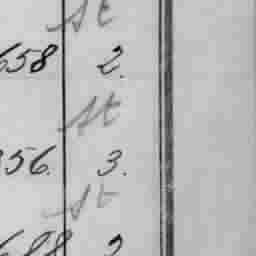 St
658 2.
St
356. 3.
St
688 2